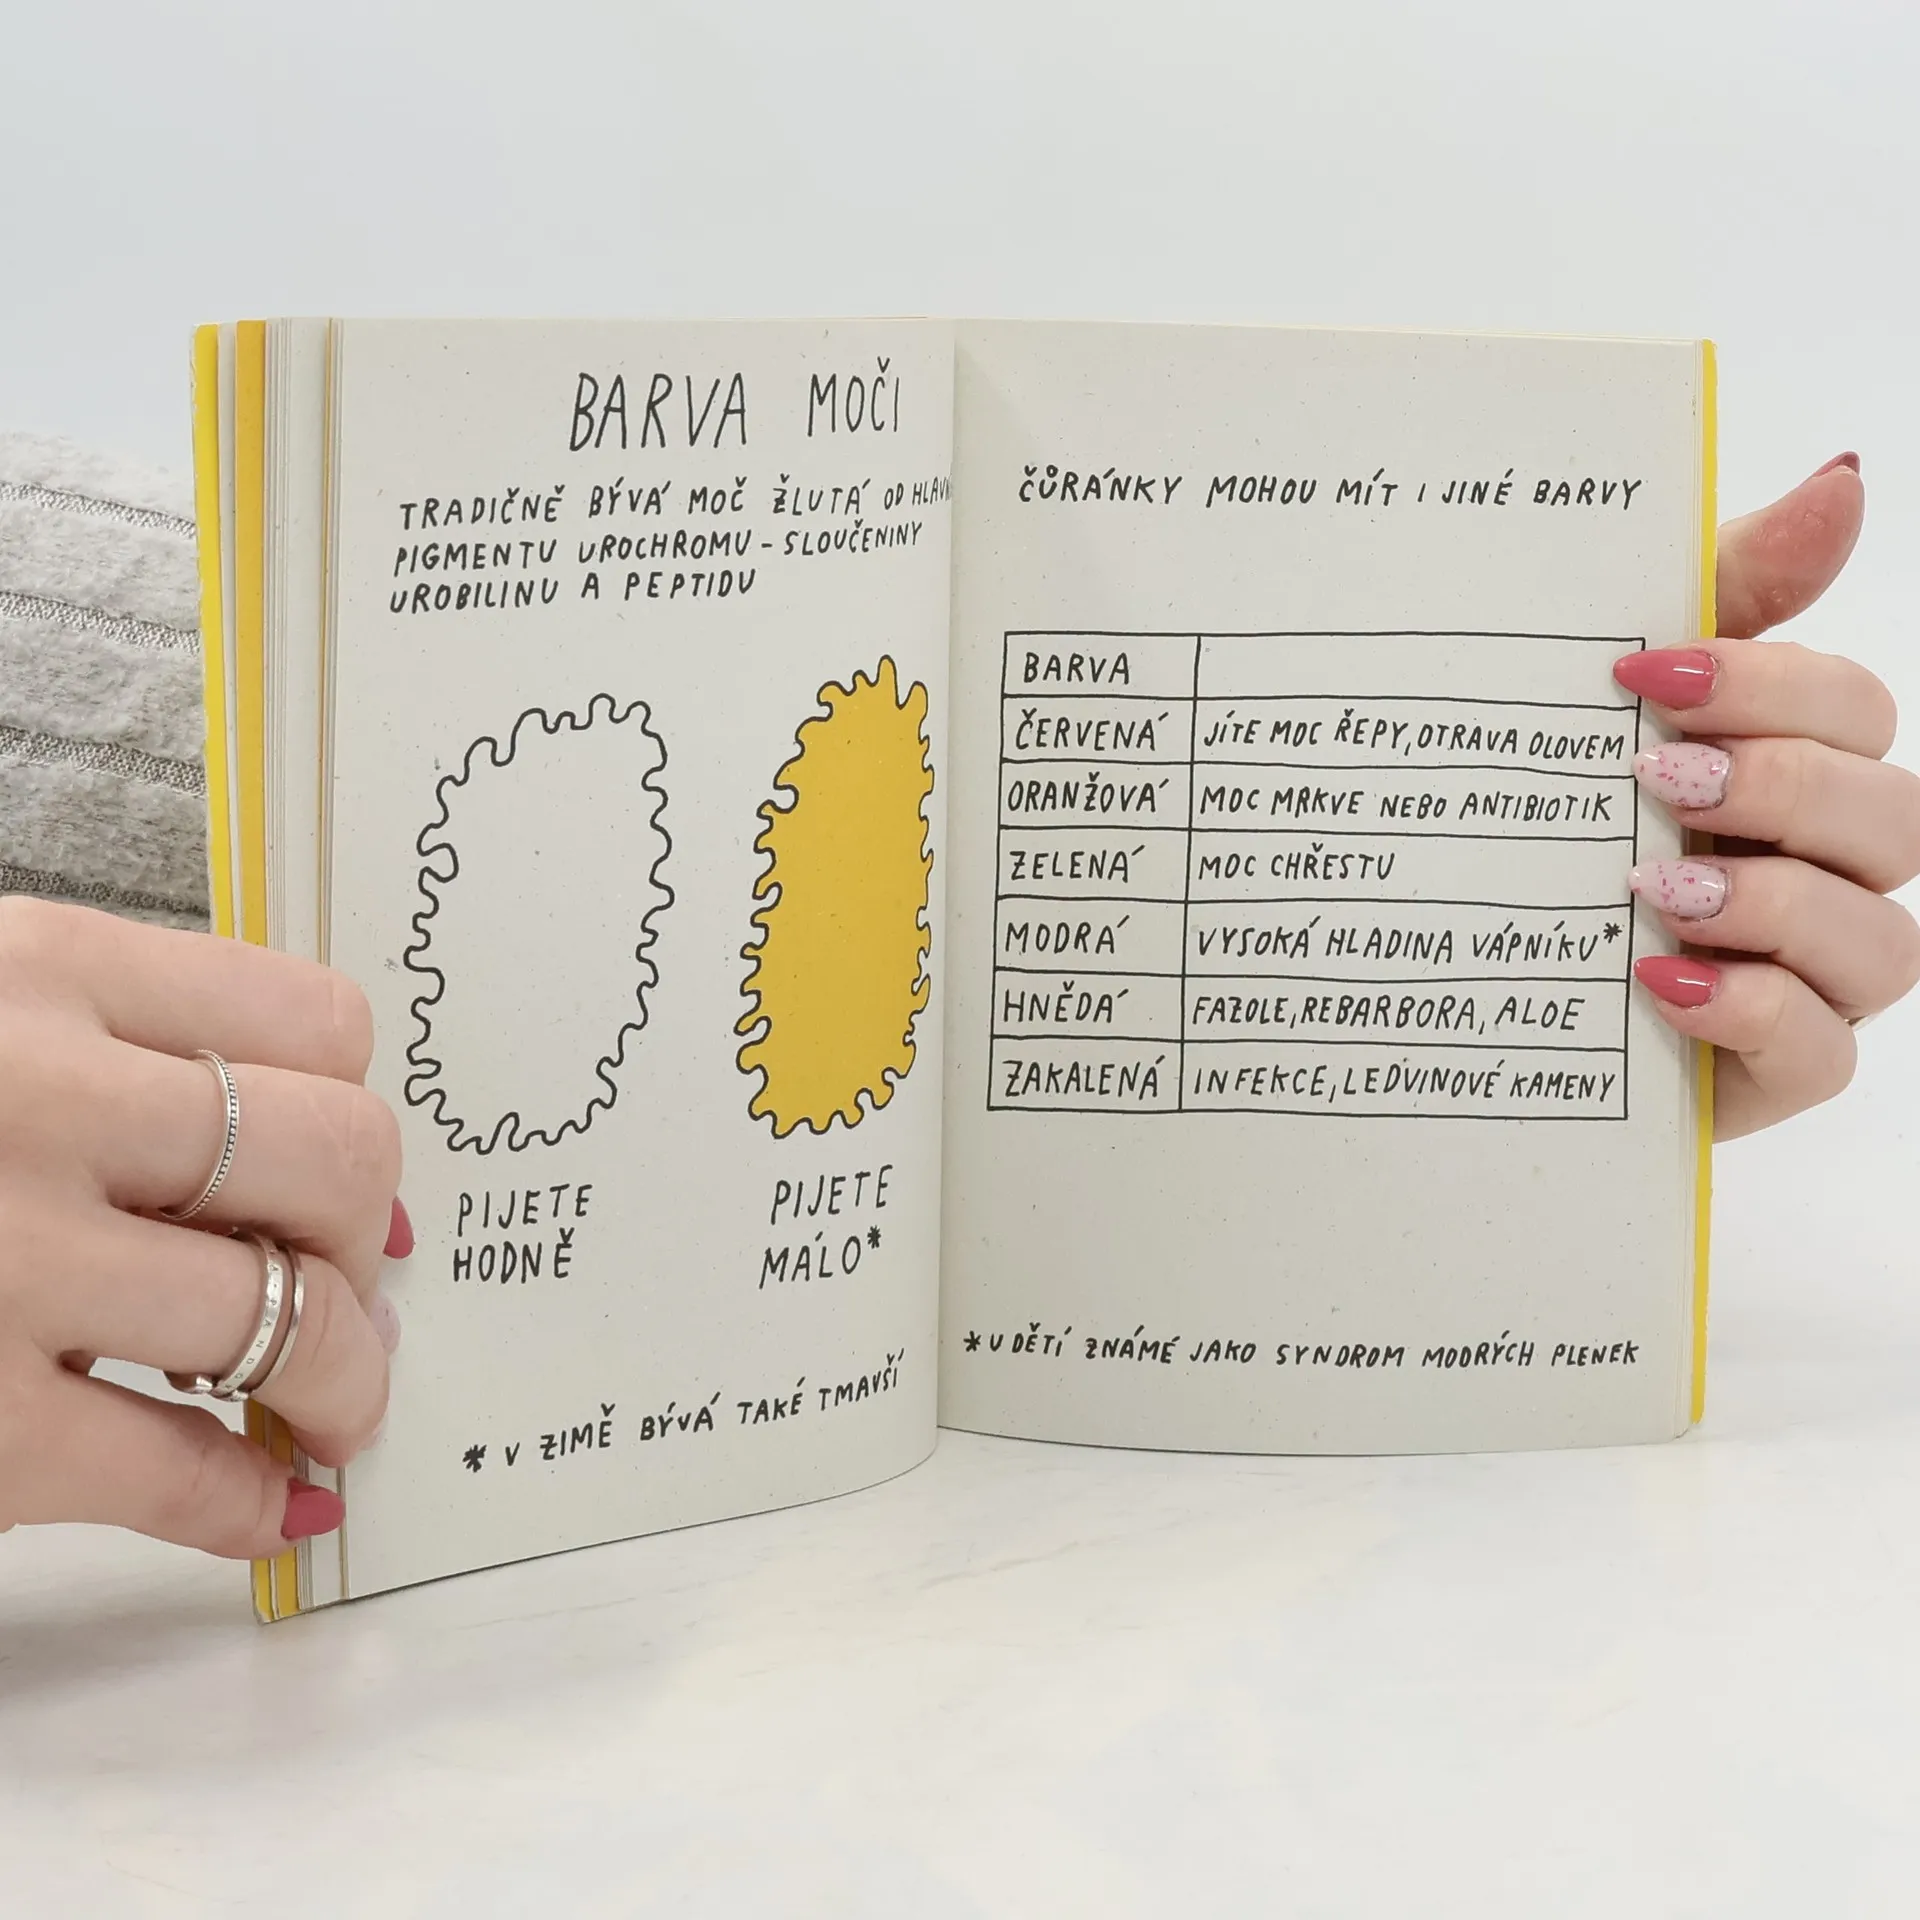 BARVA MOČI
TRADIČNĚ BÝVÁ MOČ ŽLUTÁ OD
PIGMENTU UROCHROMU - SLOUČENINY
UROBILINU A PEPTIDU
PIJETE
HODNĚ
PIJETE
MÁLO*
* V ZIMĚ BÝVÁ TAKÉ TMAVŠÍ
ČŮRÁNKY MOHOU MÍT I JINÉ BARVY
BARVA
ČERVENÁ JÍTE MOC ŘEPY, OTRAVA OLOVEM
ORANŽOVÁ MOC MRKVE NEBO ANTIBIOTIK
ZELENÁ MOC CHŘESTU
MODRÁ VYSOKÁ HLADINA VÁPNÍKU*
HNĚDÁ FAZOLE, REBARBORA, ALOE
ZAKALENÁ INFEKCE, LEDVINOVÉ KAMENY
* U DĚTÍ ZNÁMÉ JAKO SYNDROM MODRÝCH PLENEK